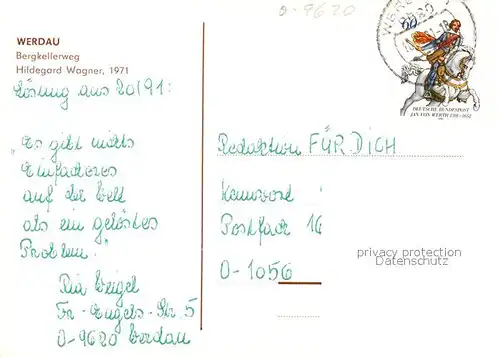 0-9620
WERDAU
Bergkellerweg
Hildegard Wagner, 1971
Lösung aus 20/91:
Es gibt nichts
Einfacheres
auf der Welt
als ein gelöstes
Problem.
Ria Weigel
Fr.-Engels-Str. 5
O-9620 Werdau
60
DEUTSCHE BUNDESPOST
JAN VON WERTH 1591-1652
Redaktion FÜR DICH
Kennwort
Postfach 16
O-1056
privacy protection
Datenschutz